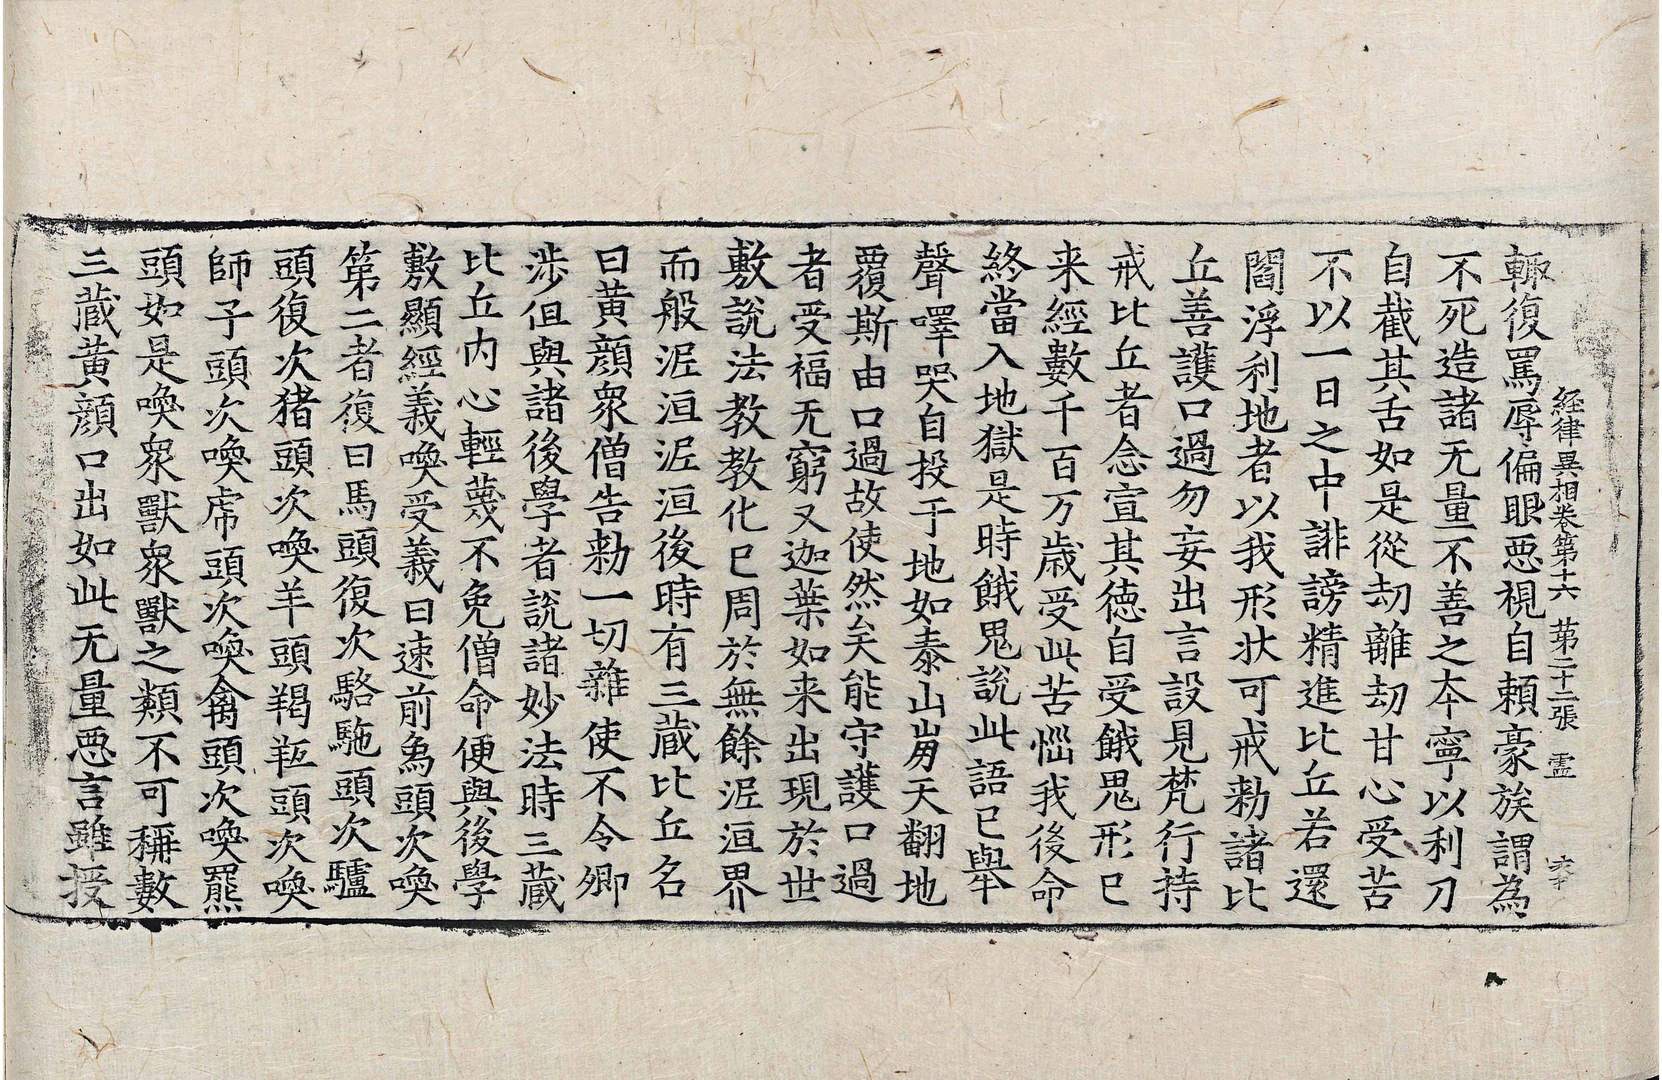 経律異相卷第十六 第二十二張 霊
輙復罵辱偏眼惡視自賴豪族謂為
不死造諸无量不善之本寧以利刀
自截其舌如是從劫離劫甘心受苦
不以一日之中誹謗精進比丘若還
閻浮利地者以我形狀可戒勑諸比
丘善護口過勿妄出言設見梵行持
戒比丘者念宣其德自受餓鬼形已
来經數千百万歲受此苦惱我後命
終當入地獄是時餓鬼說此語已舉
聲嘷哭自投于地如泰山崩天翻地
覆斯由口過故使然矣能守護口過
者受福无窮又迦葉如来出現於世
敷說法教教化已周於無餘泥洹界
而般泥洹泥洹後時有三藏比丘名
曰黃顏衆僧告勑一切雜使不令卿
涉但與諸後學者說諸妙法時三藏
比丘内心輕蔑不免僧命便與後學
敷顯經義喚受義曰速前象頭次喚
第二者復曰馬頭復次駱駞頭次驢
頭復次猪頭次喚羊頭羯羝頭次喚
師子頭次喚虎頭次喚禽頭次喚羆
頭如是喚衆獸衆獸之類不可稱數
三藏黃顏口出如此无量惡言雖授